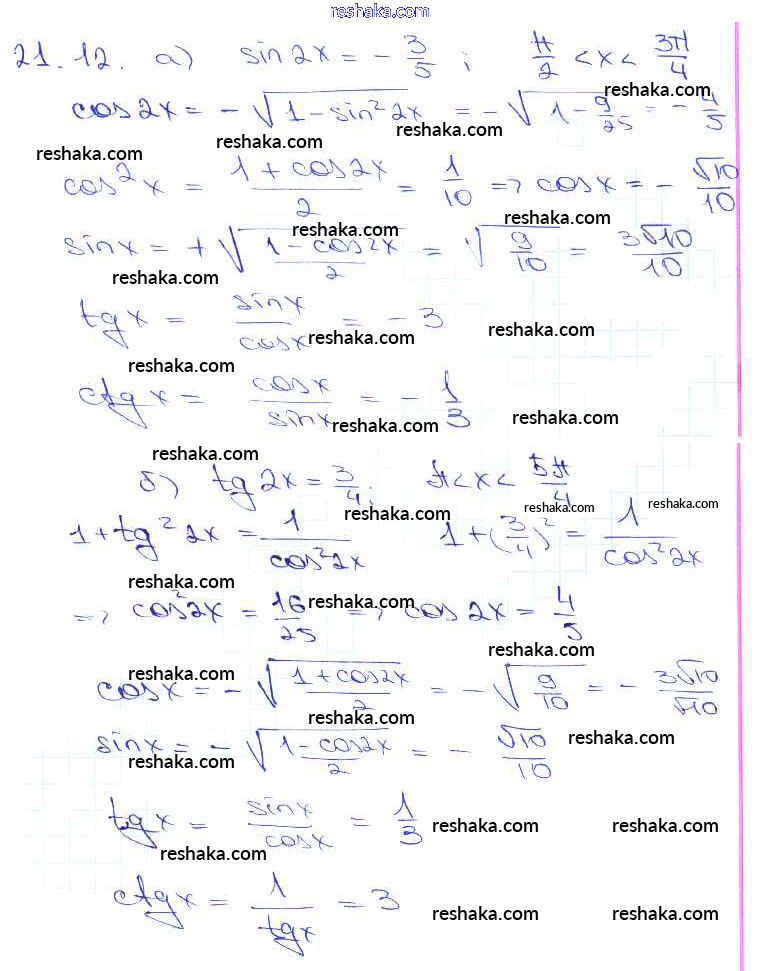 reshaka.com
21.12. а) sin2x = - 3/5 ; π/2 < x < 3π/4
reshaka.com
cos2x = -√(1-sin²2x) = -√(1 - 9/25) = - 4/5
reshaka.com reshaka.com reshaka.com
cos²x = (1+cos2x)/2 = 1/10 => cosx = - √10/10
reshaka.com reshaka.com
sinx = +√((1-cos2x)/2) = √(9/10) = 3√10/10
reshaka.com
tgx = sinx/cosx = -3
reshaka.com reshaka.com
reshaka.com
ctgx = cosx/sinx = - 1/3
reshaka.com reshaka.com
reshaka.com
б) tg2x = 3/4; π < x < 5π/4
reshaka.com reshaka.com reshaka.com
1+tg²2x = 1/cos²2x 1+(3/4)² = 1/cos²2x
reshaka.com
=> cos²2x = 16/25 => cos2x = 4/5
reshaka.com reshaka.com
reshaka.com
cosx = -√((1+cos2x)/2) = -√(9/10) = - 3√10/√10
reshaka.com
sinx = -√((1-cos2x)/2) = - √10/10
reshaka.com reshaka.com
tgx = sinx/cosx = 1/3
reshaka.com reshaka.com reshaka.com
ctgx = 1/tgx = 3
reshaka.com reshaka.com